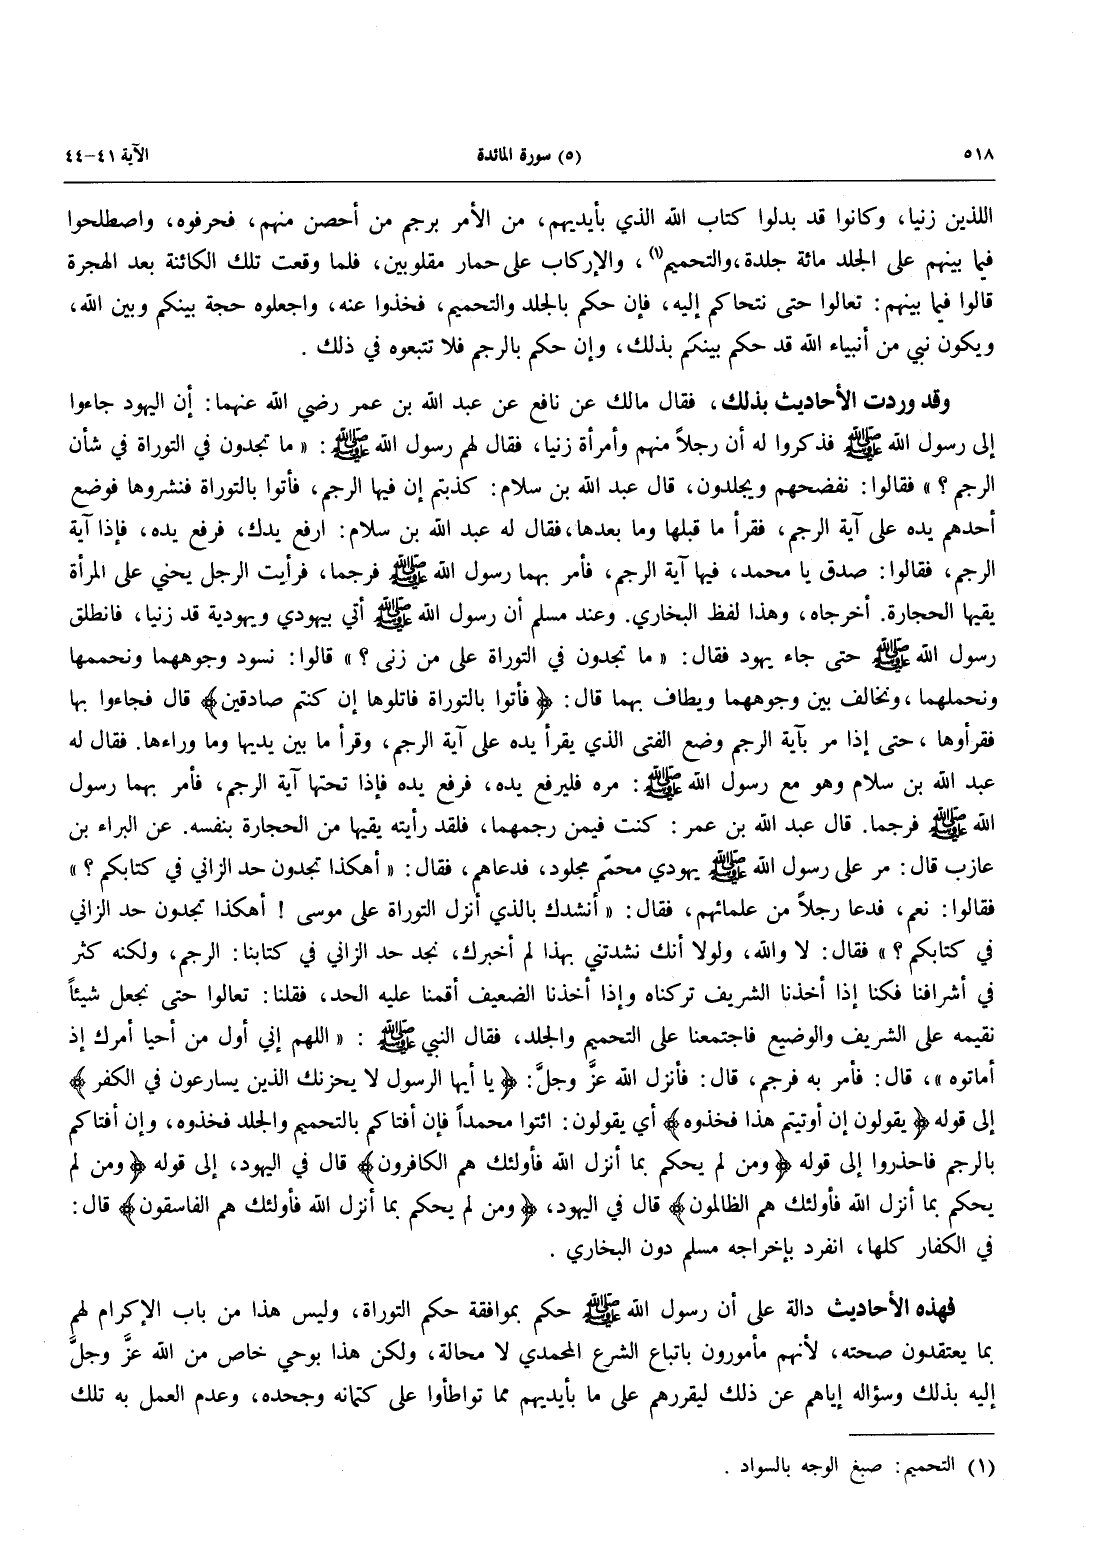 ٥١٨ (٥) سورة المائدة الآية ٤١-٤٤
اللذين زنيا، وكانوا قد بدلوا كتاب الله الذي بأيديهم، من الأمر برجم من أحصن منهم، فحرفوه، واصطلحوا
فيما بينهم على الجلد مائة جلدة،والتحميم(١)، والإركاب على حمار مقلوبين، فلما وقعت تلك الكائنة بعد الهجرة
قالوا فيما بينهم: تعالوا حتى نتحاكم إليه، فإن حكم بالجلد والتحميم، فخذوا عنه، واجعلوه حجة بينكم وبين الله،
ويكون نبي من أنبياء الله قد حكم بينكم بذلك، وإن حكم بالرجم فلا تتبعوه في ذلك .
وقد وردت الأحاديث بذلك، فقال مالك عن نافع عن عبد الله بن عمر رضي الله عنهما: إن اليهود جاءوا
إلى رسول الله ﷺ فذكروا له أن رجلاً منهم وأمرأة زنيا، فقال لهم رسول الله ﷺ: « ما تجدون في التوراة في شأن
الرجم ؟ » فقالوا: نفضحهم ويجلدون، قال عبد الله بن سلام: كذبتم إن فيها الرجم، فأتوا بالتوراة فنشروها فوضع
أحدهم يده على آية الرجم، فقرأ ما قبلها وما بعدها،فقال له عبد الله بن سلام: ارفع يدك، فرفع يده، فإذا آية
الرجم، فقالوا: صدق يا محمد، فيها آية الرجم، فأمر بهما رسول الله ﷺ فرجما، فرأيت الرجل يحني على المرأة
يقيها الحجارة. أخرجاه، وهذا لفظ البخاري. وعند مسلم أن رسول الله ﷺ أتي بيهودي ويهودية قد زنيا، فانطلق
رسول الله ﷺ حتى جاء يهود فقال: « ما تجدون في التوراة على من زنى ؟ » قالوا: نسود وجوههما ونحممها
ونحملهما ،ونخالف بين وجوههما ويطاف بهما قال: ﴿ فأتوا بالتوراة فاتلوها إن كنتم صادقين﴾ قال فجاءوا بها
فقرأوها ،حتى إذا مر بآية الرجم وضع الفتى الذي يقرأ يده على آية الرجم، وقرأ ما بين يديها وما وراءها. فقال له
عبد الله بن سلام وهو مع رسول الله ﷺ: مره فليرفع يده، فرفع يده فإذا تحتها آية الرجم، فأمر بهما رسول
الله ﷺ فرجما. قال عبد الله بن عمر : كنت فيمن رجمهما، فلقد رأيته يقيها من الحجارة بنفسه. عن البراء بن
عازب قال: مر على رسول الله ﷺ يهودي محمّم مجلود، فدعاهم، فقال: « أهكذا تجدون حد الزاني في كتابكم ؟ »
فقالوا: نعم، فدعا رجلاً من علمائهم، فقال: « أنشدك بالذي أنزل التوراة على موسى ! أهكذا تجدون حد الزاني
في كتابكم ؟ » فقال: لا والله، ولولا أنك نشدتني بهذا لم أخبرك، نجد حد الزاني في كتابنا: الرجم، ولكنه كثر
في أشرافنا فكنا إذا أخذنا الشريف تركناه وإذا أخذنا الضعيف أقمنا عليه الحد، فقلنا: تعالوا حتى نجعل شيئاً
نقيمه على الشريف والوضيع فاجتمعنا على التحميم والجلد، فقال النبي ﷺ : « اللهم إني أول من أحيا أمرك إذ
أماتوه »، قال: فأمر به فرجم، قال: فأنزل الله عزَّ وجلَّ: ﴿ يا أيها الرسول لا يحزنك الذين يسارعون في الكفر ﴾
إلى قوله ﴿ يقولون إن أوتيتم هذا فخذوه﴾ أي يقولون: ائتوا محمداً فإن أفتاكم بالتحميم والجلد فخذوه، وإن أفتاكم
بالرجم فاحذروا إلى قوله ﴿ ومن لم يحكم بما أنزل الله فأولئك هم الكافرون﴾ قال في اليهود، إلى قوله ﴿ ومن لم
يحكم بما أنزل الله فأولئك هم الظالمون﴾ قال في اليهود، ﴿ ومن لم يحكم بما أنزل الله فأولئك هم الفاسقون﴾ قال:
في الكفار كلها، انفرد بإخراجه مسلم دون البخاري .
فهذه الأحاديث دالة على أن رسول الله ﷺ حكم بموافقة حكم التوراة، وليس هذا من باب الإكرام لهم
بما يعتقدون صحته، لأنهم مأمورون باتباع الشرع المحمدي لا محالة، ولكن هذا بوحي خاص من الله عزَّ وجلَّ
إليه بذلك وسؤاله إياهم عن ذلك ليقررهم على ما بأيديهم مما تواطأوا على كتمانه وجحده، وعدم العمل به تلك
(١) التحميم: صبغ الوجه بالسواد .